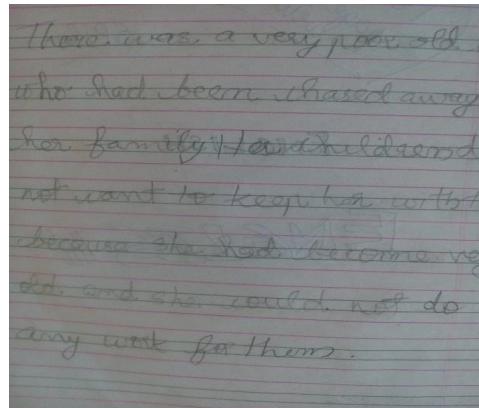 There was a very poor old
who had been chased away
her family Her children d
not want to keep her with t
because she had become ve
old and she could not do
any work for them.